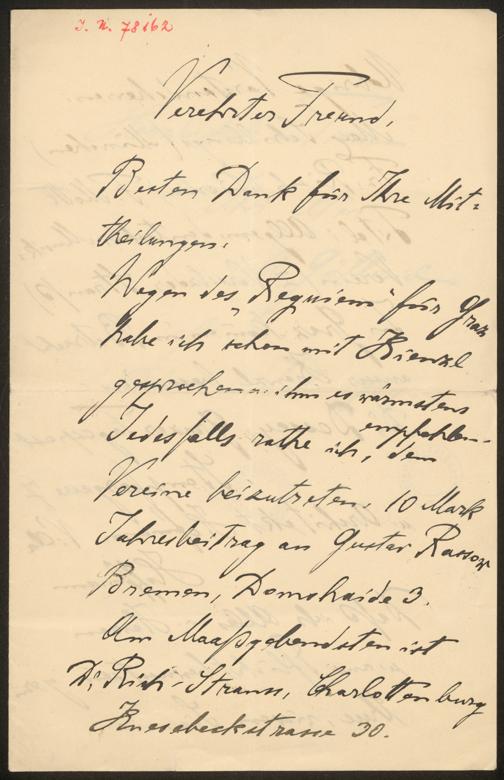 J. N. 78162
Verehrter Freund,
Besten Dank für Ihre Mit-
theilungen.
Wegen des „Requiem“ für Graz
habe ich schon mit Kienzl
gesprochen u. ihm es wärmstens
empfohlen.
Jedesfalls rathe ich, dem
Vereine beizutreten. 10 Mark
Jahresbeitrag an Gustav Rassow
Bremen, Domshaide 3.
Am Maaßgebendsten ist
Dr. Rich. Strauss, Charlottenburg
Knesebeckstrasse 30.